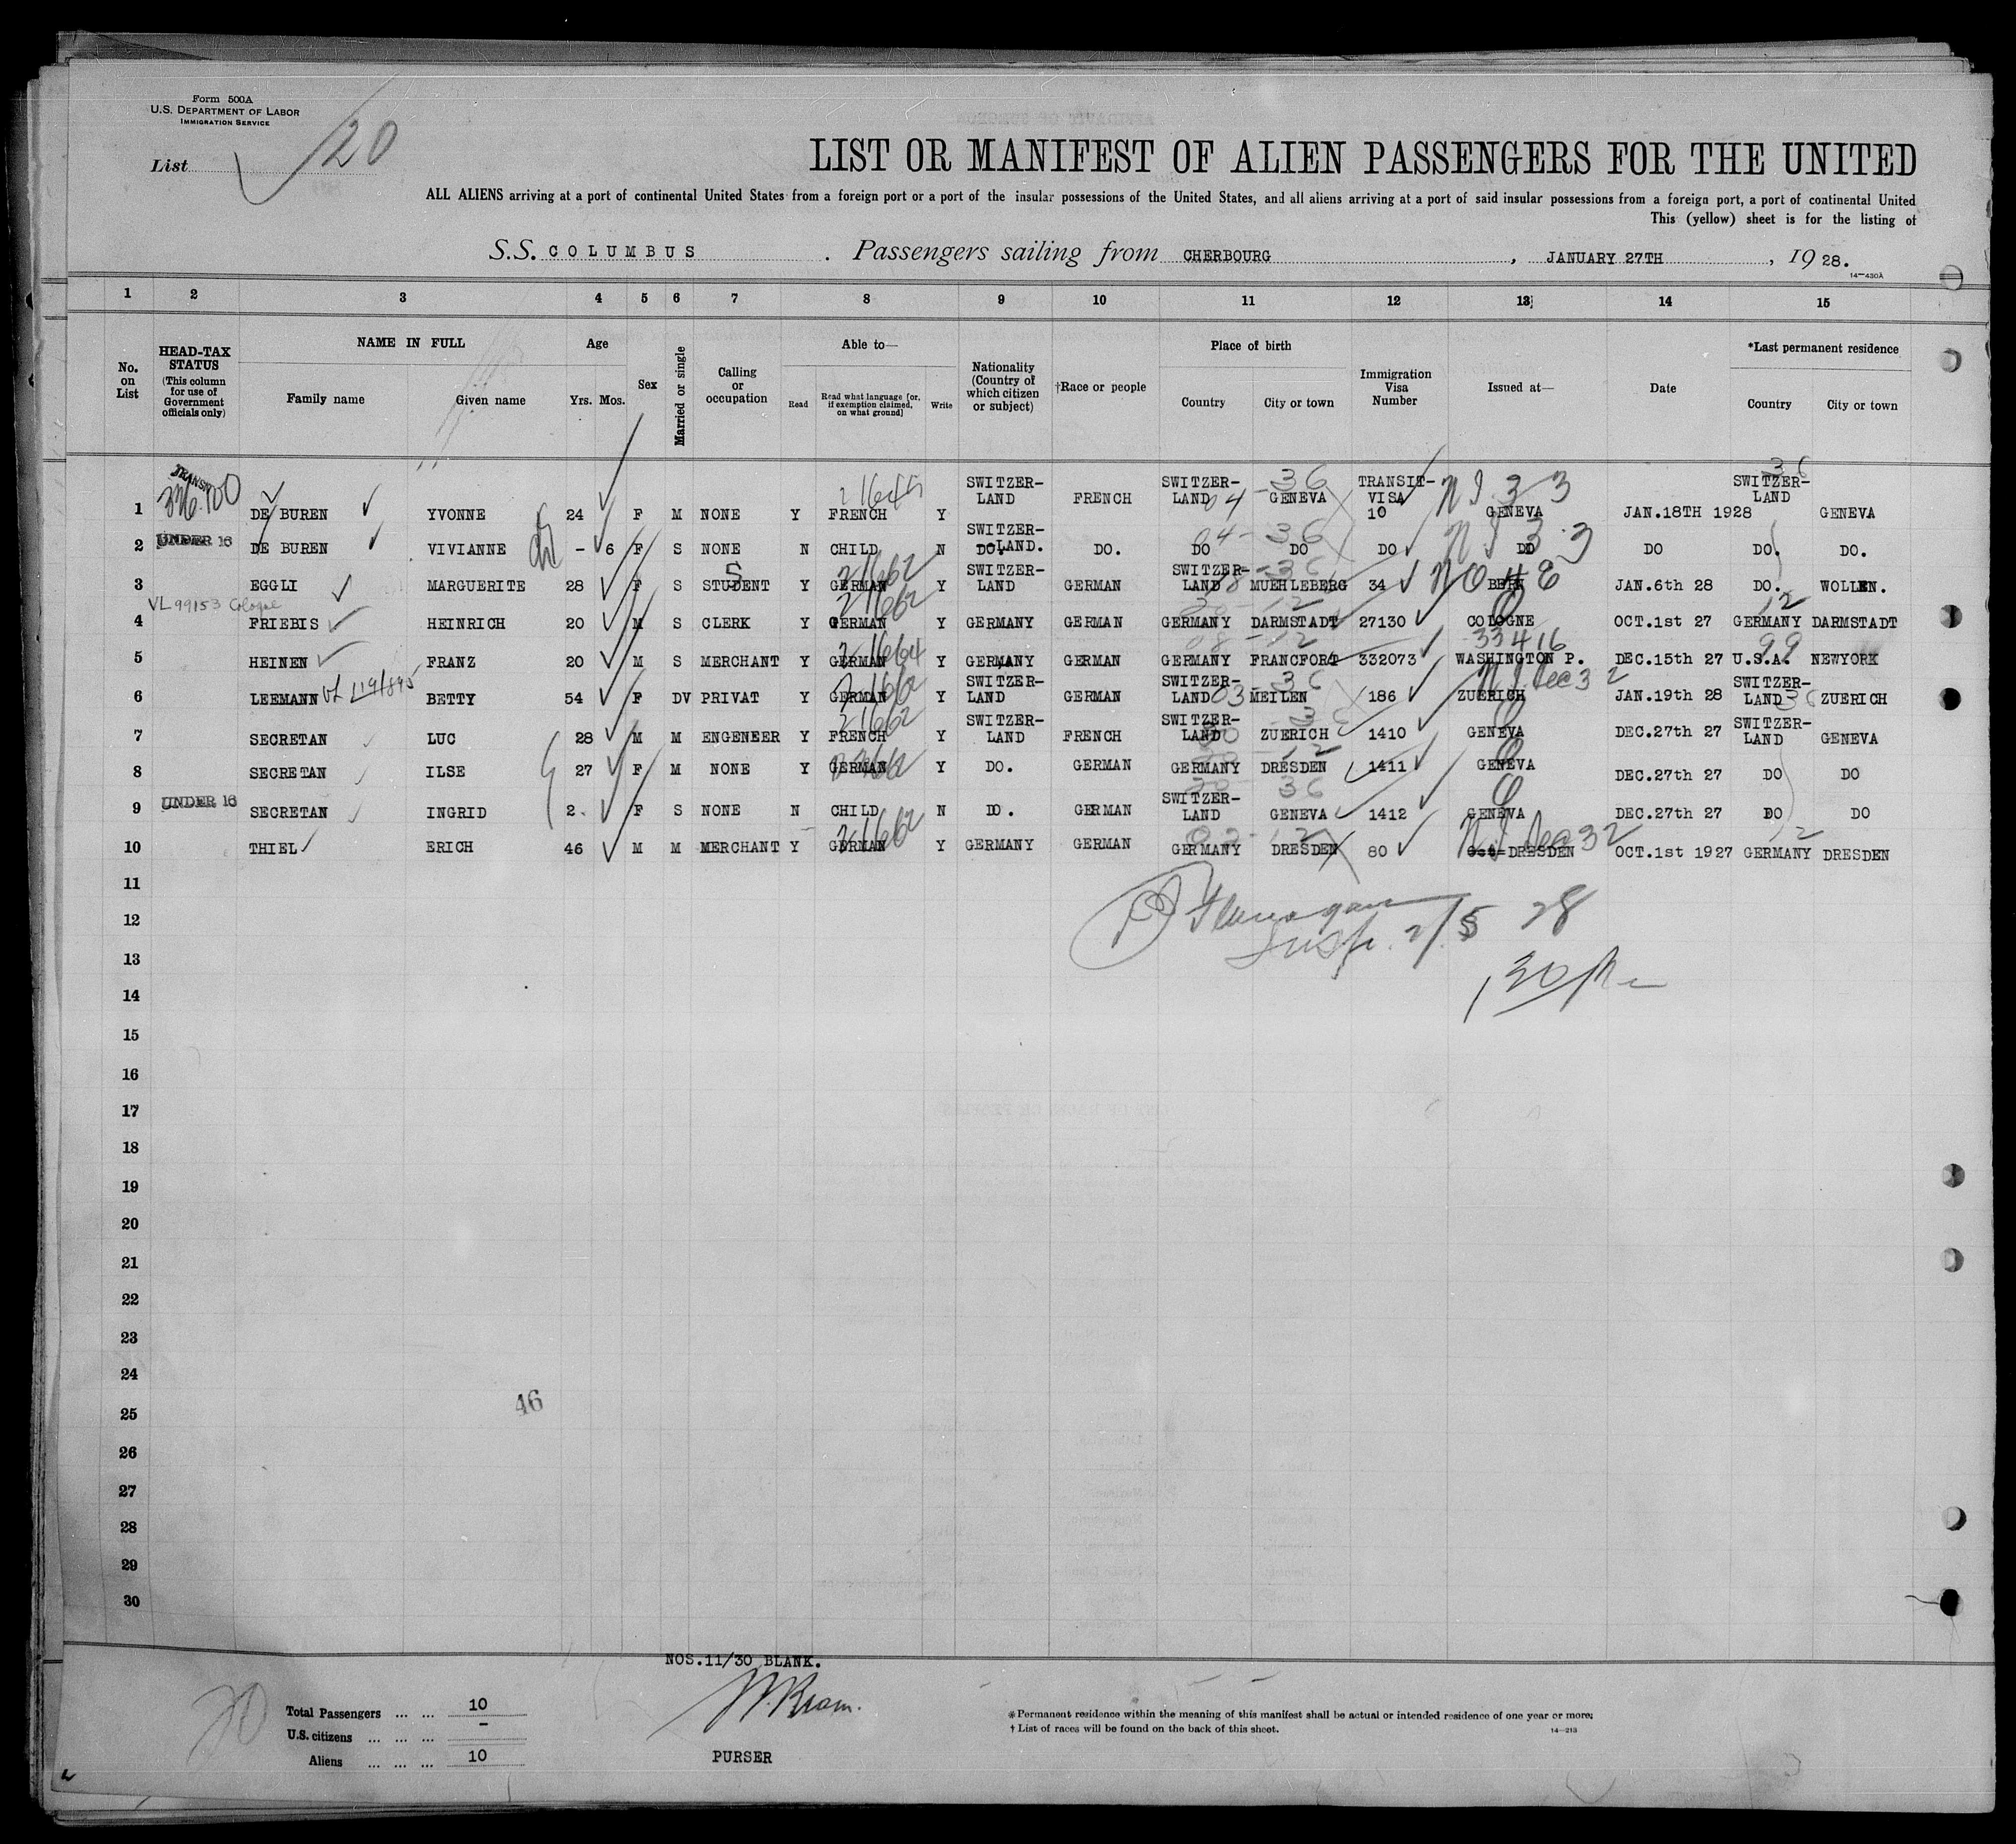 Form 500A
U.S. DEPARTMENT OF LABOR
IMMIGRATION SERVICE
List 20
LIST OR MANIFEST OF ALIEN PASSENGERS FOR THE UNITED
ALL ALIENS arriving at a port of continental United States from a foreign port or a port of the insular possessions of the United States, and all aliens arriving at a port of said insular possessions from a foreign port, a port of continental United
This (yellow) sheet is for the listing of
S.S. COLUMBUS . Passengers sailing from CHERBOURG , JANUARY 27TH , 1928.
14—430A
1 2 3 4 5 6 7 8 9 10 11 12 13 14 15
No. on List
HEAD-TAX STATUS (This column for use of Government officials only)
NAME IN FULL Family name Given name
Age Yrs. Mos.
Sex
Married or single
Calling or occupation
Able to— Read Read what language [or, if exemption claimed, on what ground] Write
Nationality (Country of which citizen or subject)
†Race or people
Place of birth Country City or town
Immigration Visa Number
Issued at—
Date
*Last permanent residence Country City or town
1 DE BUREN YVONNE 24 F M NONE Y FRENCH Y SWITZER-LAND FRENCH SWITZER-LAND GENEVA TRANSIT-VISA 10 GENEVA JAN.18TH 1928 SWITZER-LAND GENEVA
2 UNDER 16 DE BUREN VIVIANNE - 6 F S NONE N CHILD N SWITZER-LAND. DO. DO. DO DO DO DO DO DO. DO.
3 EGGLI MARGUERITE 28 F S STUDENT Y GERMAN Y SWITZER-LAND GERMAN SWITZER-LAND MUEHLEBERG 34 BERN JAN.6th 28 DO. WOLLEN.
VL 99153 Cologne
4 FRIEBIS HEINRICH 20 M S CLERK Y GERMAN Y GERMANY GERMAN GERMANY DARMSTADT 27130 COLOGNE OCT.1st 27 GERMANY DARMSTADT
5 HEINEN FRANZ 20 M S MERCHANT Y GERMAN Y GERMANY GERMAN GERMANY FRANCFORT 332073 WASHINGTON P. DEC.15th 27 U.S.A. NEWYORK
6 LEEMANN BETTY 54 F DV PRIVAT Y GERMAN Y SWITZER-LAND GERMAN SWITZER-LAND MEILEN 186 ZUERICH JAN.19th 28 SWITZER-LAND ZUERICH
7 SECRETAN LUC 28 M M ENGENEER Y FRENCH Y SWITZER-LAND FRENCH SWITZER-LAND ZUERICH 1410 GENEVA DEC.27th 27 SWITZER-LAND GENEVA
8 SECRETAN ILSE 27 F M NONE Y GERMAN Y DO. GERMAN GERMANY DRESDEN 1411 GENEVA DEC.27th 27 DO DO
9 UNDER 16 SECRETAN INGRID 2. F S NONE N CHILD N DO. GERMAN SWITZER-LAND GENEVA 1412 GENEVA DEC.27th 27 DO DO
10 THIEL ERICH 46 M M MERCHANT Y GERMAN Y GERMANY GERMAN GERMANY DRESDEN 80 DRESDEN OCT.1st 1927 GERMANY DRESDEN
11
12
13
14
15
16
17
18
19
20
21
22
23
24
25
26
27
28
29
30
46
NOS.11/30 BLANK.
Total Passengers ... ... 10
U.S. citizens ... ... ... -
Aliens ... ... ... 10
PURSER
* Permanent residence within the meaning of this manifest shall be actual or intended residence of one year or more.
† List of races will be found on the back of this sheet.
14—213